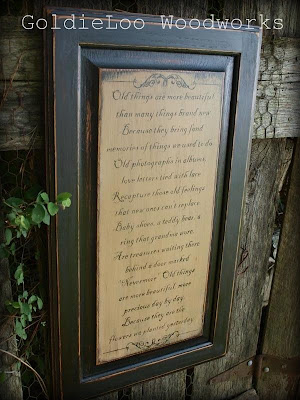 GoldieLoo Woodworks
Old things are more beautiful
than many things brand new
Because they bring fond
memories of things we used to do
Old photographs in albums,
love letters tied with lace
Recapture those old feelings
that new ones can't replace
Baby shoes, a teddy bear, a
ring that grandma wore,
Are treasures waiting there
behind a door marked
"Nevermore" Old things
are more beautiful, more
precious day by day.
Because they are the
flowers we planted yesterday